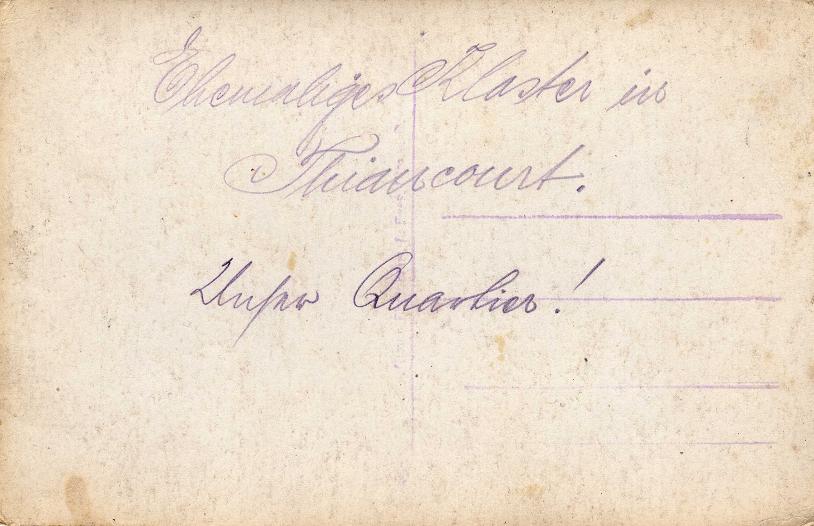 Ehemaliges Kloster in
Thiaucourt.
Unser Quartier!